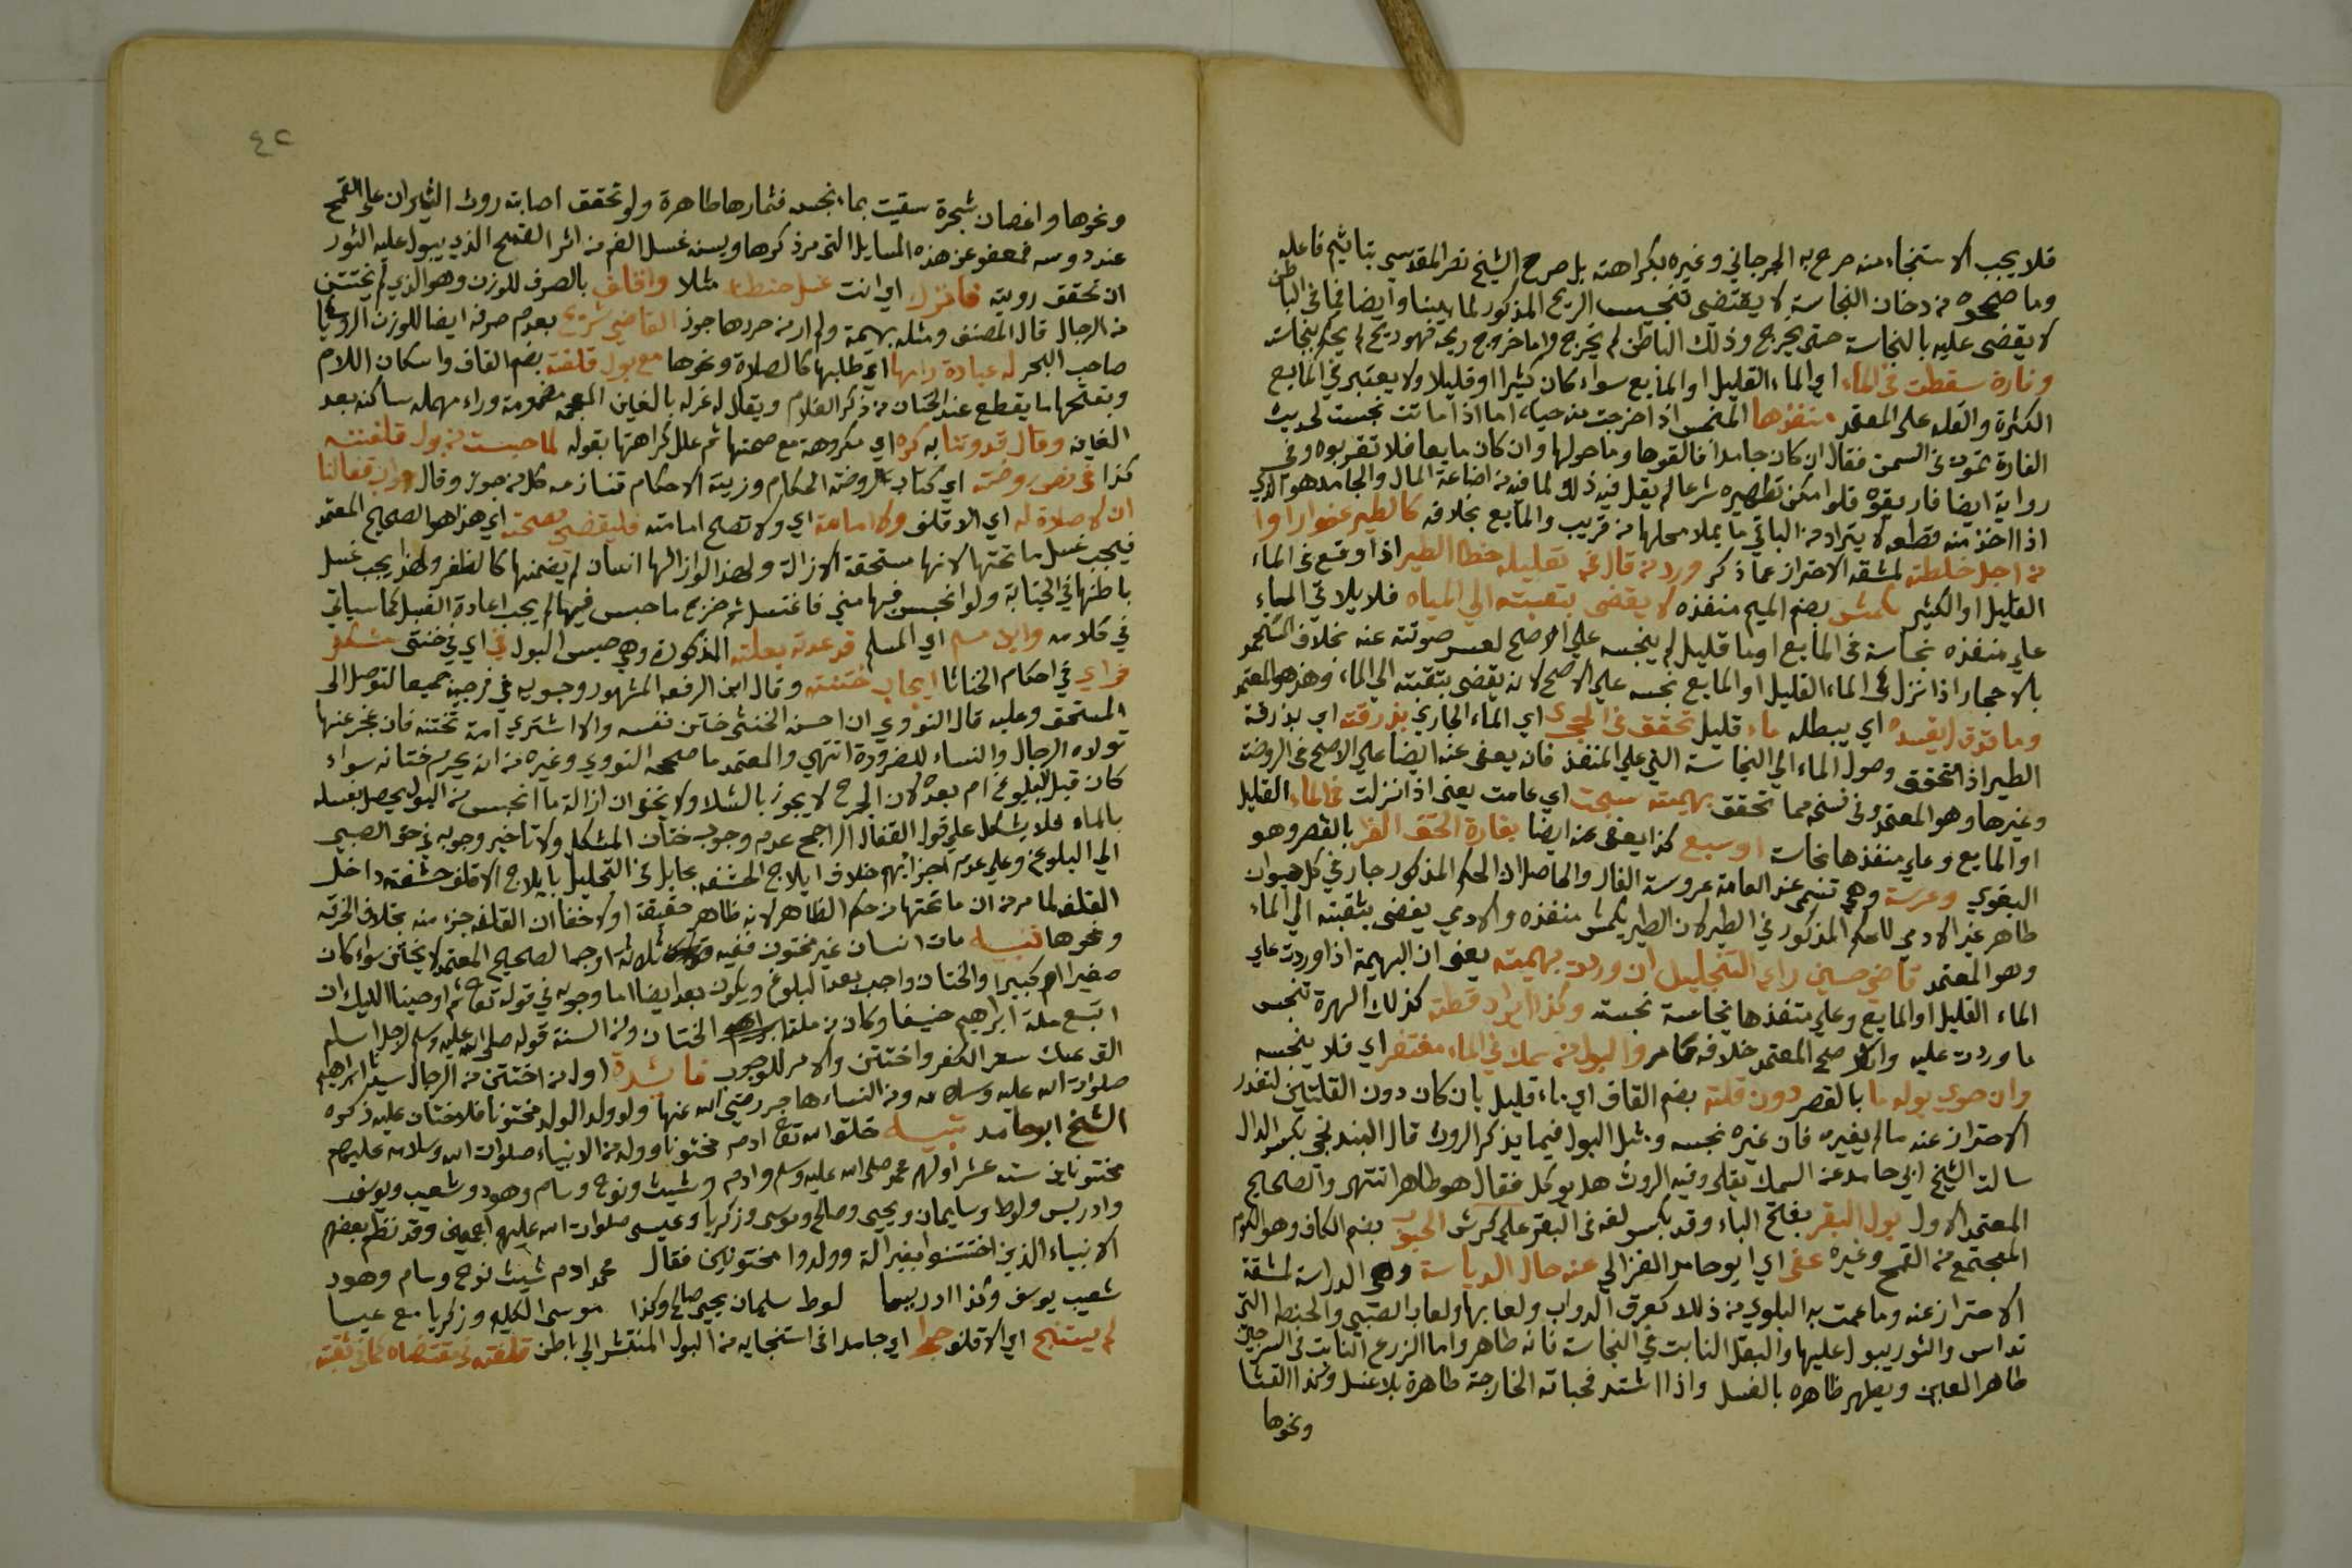 فلا يجب الاستنجاء منه صرح به الجرجاني وغيره بكراهته بل صرح الشيخ نصر المقدسي بتاثيم فاعله
وما صححوه من دخان النجاسة لا يقتضى تنجيس الريح المذكور لما بينا وايضا فما في الباطن
لا يقضى عليه بالنجاسة حتى يخرج وذلك الباطن لم يخرج واما خروج ريحه فهو ريح لم يحكم بنجاسته
وفارة سقطت في الماء اي الماء القليل او المايع سواء كان كثيرا او قليلا ولا يعتبر في المايع
الكثرة والقلة على المعتمد منفذها المنغمس اذا خرجت منه حياء اما اذا ماتت نجست لحديث
الفارة تموت في السمن فقال ان كان جامدا فالقوها وما حولها وان كان مايعا فلا تقربوه وفي
رواية ايضا فاريقوه فلو امكن تطهيره شرعا لم يقل فيه ذلك لما فيه من اضاعة المال والجامد هو الذي
اذا اخذ منه قطعه لا يتراد من الباقي ما يملا محلها من قريب والمايع بخلافه كالطير عفوا راوا
من اجل خلطته لمشقة الاحتراز عما ذكر ورد من قال في تعليله خطا الطير اذا وقع في الماء
القليل او الكثير يكمش بضم الميم منفذه لا يفضى بثقبته الي المياه فلا يلاقي الماء
علي منفذه نجاسة في المايع او ماء قليل لم ينجسه علي الاصح لعسر صونه عنه بخلاف المستجمر
بالاحجار اذا نزل في الماء القليل او المايع نجسه علي الاصح لانه يفضى بثقبته الي الماء وهذا هو المعتمد
وما ذرق ليفسده اي يبطله ماء قليل تحقق في المجري اي الماء الجاري بذرقته اي بذرقة
الطير اذا تحقق وصول الماء الي النجاسة التي علي المنفذ فانه يعفى عنه ايضا علي الاصح في الروضة
وغيرها وهو المعتمد وفي نسخ مما تحقق بهيمته سبحت اي عامت يعفى اذا نزلت في الماء القليل
او المايع وعلي منفذها نجاسة او سبع كذا يعفى عنه ايضا بفارة الحق الفر بالقصر وهو
البغوي وعرسة وهي تسمى عند العامة عروسة الفار والحاصل ان الحكم المذكور جار في كل حيوان
طاهر غير الادمي للحكم المذكور في الطير لان الطير يكمش منفذه والادمي يفضى بثقبته الي الماء
وهو المعتمد قاضي حسين راي التنجيل ان وردت بهيمته يعني ان البهيمة اذا وردت علي
الماء القليل او المايع وعلي منفذها نجاسة نجسته وكذا ايراد قطة كذلك الهرة تنجس
ما وردت عليه والاصح المعتمد خلافه كما مر والبول من سمك في الماء مغتفر اي فلا ينجسه
وان حوي بوله ما بالقصر دون قلته بضم القاف اي ماء قليل بان كان دون القلتين لتعذر
الاحتراز عنه ما لم يغيره فان غيره نجسه ومثل البول فيما يذكر الروث قال البندنيجي بكسر الدال
سالت الشيخ ابي حامد عن السمك يقلى وفيه الروث هل يوكل فقال هو طاهر انتهى والصحيح
المعتمد الاول بول البقر بفتح الباء وقد بكسر لغة في البقر علي كرش الحبوب بضم الكاف وهو الكوم
المجتمع من القمح وغيره عفى اي ابو حامد الغزالي عنه حال الدياسة وهي الدراسة لمشقة
الاحتراز عنه وما عمت به البلوي من ذلك كعرق الدواب ولعابها ولعاب الصبي والحنطه التي
تداس والثور يبول عليها والبقل النابت في النجاسة فانه طاهر واما الزرع النابت في السرجين
طاهر العين ويطهر ظاهره بالغسل واذا اشتد فحباته الخارجة طاهرة بلا غسل وكذا القثا
ونحوها
٤٢
ونحوها واغصان شجرة سقيت بماء نجس فثمارها طاهرة ولو تحقق اصابته روث الثيران على القمح
عند دوسه فمعفو عن هذه المسايل التي مر ذكرها ويسن غسل الفم من اثر القمح الذي يبول عليه الثور
ان تحقق رويته فاتزك اي انت غسل حنطة مثلا واقلف بالصرف للوزن وهو الذي لم يختتن
من الرجال قال المصنف ومثله بهيمة ولم ار من حررها جوز القاضي شريح بعدم صرفه ايضا للوزن الروياني
صاحب البحر له عبادة رامها اي طلبها كالصلاة ونحوها مع بول قلفته بضم القاف واسكان اللام
وبفتحها ما يقطع عند الختان من ذكر الغلام ويقال له غرله بالغين المعجمه مضمومة وراء مهمله ساكنه بعد
الغين وقال قدوتنا به كره اي مكروهة مع صحتها ثم علل كراهتها بقوله لما حبست من بول قلفته
كذا في نص روضته اي كتاب الروضة الحكام وزينة الاحكام قناز مه كل من جوز وقال وان قفالنا
ان لا صلاة له اي الاقلف ولا امامة اي ولا تصح امامته فليقضى بصحته اي هذا هو الصحيح المعتمد
فيجب غسل ما تحتها لانها مستحقة الازالة ولهذا لو ازالها انسان لم يضمنها كالظفر ولهذا يجب غسل
باطنها في الجنابة ولو انحبس فيها مني فاغتسل ثم خرج ما حبس فيها لم يجب اعادة الغسل كما سياتي
في كلامه وابن مسلم اي المسلم قد عدته بعلته المذكورة وهي حبس البول في اي في خنثى مشكل
فراي في احكام الخناثا ايجاب ختنته وقال ابن الرفعه المشهور وجوبه في فرجيه جميعا لتوصل الى
المستحق وعليه قال النووي ان احسن الخنثى ختن نفسه والا اشتري امة تختنه فان عجز عنها
تولاه الرجال والنساء للضرورة انتهي والمعتمد ما صححه النووي وغيره من انه يحرم ختانه سواء
كان قبل البلوغ ام بعده لان الجرح لا يجوز بالشك ولا يخفى ان ازالة ما انحبس من البول يحصل بغسله
بالماء فلا يشكل علي قول القفال الراجح عدم وجوب ختان المشكل ولا تاخير وجوبه في حق الصبي
الي البلوغ وعلي عدم اجزائهم خلاف ايلاج الحشفه بحايل في التحليل بايلاج الاقلف حشفته داخل
القلفه لما مر من ان ما تحتها من حكم الظاهر لانه ظاهر حقيقة اولا خفا ان القلفه جزء منه بخلاف الخرقة
ونحوها تنبيه مات انسان غير مختون ففيه ثلاثة اوجه الصحيح المعتمد لا يختن سواء كان
صغيرا ام كبيرا والختان واجب بعد البلوغ ويكون بعد ايضا اما وجوبه في قوله تعالى ثم اوحينا اليك ان
اتبع ملة ابراهيم حنيفا وكان من ملته الختان ومن السنة قوله صلى الله عليه وسلم لرجل اسلم
الق عنك شعر الكفر واختتن والامر للوجوب فائدة اول من اختتن من الرجال سيدنا ابراهيم
صلوات الله عليه وسلامه ومن النساء هاجر رضي الله عنها ولو ولد الولد مختونا فلا ختان عليه ذكره
الشيخ ابو حامد تنبيه خلق الله تعالى ادم مختونا وولد من الانبياء صلوات الله وسلامه عليهم
مختونا من سته عشر اولهم محمد صلى الله عليه وسلم وادم وشيث ونوح وسام وهود وشعيب ويوسف
وادريس ولوط وسليمان ويحيى وصالح وموسى وزكريا وعيسى صلوات الله عليهم اجمعين وقد نظم بعضهم
الانبياء الذين اختتنوا بغير الة وولدوا مختونين فقال محمد ادم شيث نوح وسام وهود
شعيب يوسف وكذا ادريسا لوط سليمان يحيى صالح وكذا موسى الكليم وزكريا مع عيسا
لم يستنج اي الاقلف جوا اي جامدا في استنجايه من البول المنتشر الي باطن قلفته في مقتضاه كما في ثقبته